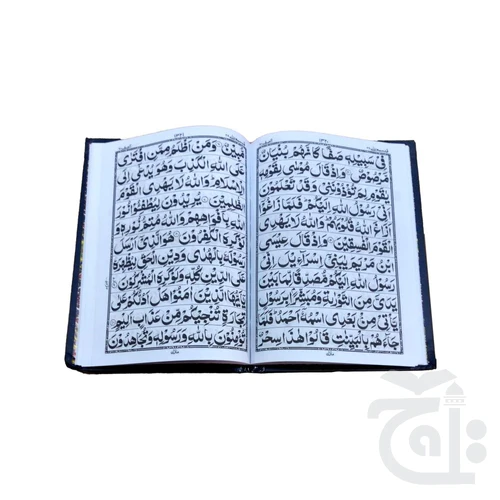 فِیْ سَبِیْلِهٖ صَفًّا کَاَنَّهُمْ بُنْیَانٌ
مَّرْصُوْصٌ وَاِذْ قَالَ مُوْسٰی لِقَوْمِهٖ
یٰقَوْمِ لِمَ تُؤْذُوْنَنِیْ وَقَدْ تَّعْلَمُوْنَ
اَنِّیْ رَسُوْلُ اللّٰهِ اِلَیْکُمْ فَلَمَّا زَاغُوْۤا
اَزَاغَ اللّٰهُ قُلُوْبَهُمْ وَاللّٰهُ لَا یَهْدِی
الْقَوْمَ الْفٰسِقِیْنَ وَاِذْ قَالَ عِیْسَی
ابْنُ مَرْیَمَ یٰبَنِیْۤ اِسْرَآءِیْلَ اِنِّیْ
رَسُوْلُ اللّٰهِ اِلَیْکُمْ مُّصَدِّقًا لِّمَا بَیْنَ
یَدَیَّ مِنَ التَّوْرٰىةِ وَمُبَشِّرًۢا بِرَسُوْلٍ
یَّاْتِیْ مِنْۢ بَعْدِی اسْمُهٗۤ اَحْمَدُ فَلَمَّا
جَآءَهُمْ بِالْبَیِّنٰتِ قَالُوْا هٰذَا سِحْرٌ
مُّبِیْنٌ وَمَنْ اَظْلَمُ مِمَّنِ افْتَرٰی
عَلَی اللّٰهِ الْکَذِبَ وَهُوَ یُدْعٰۤی اِلَی
الْاِسْلَامِ وَاللّٰهُ لَا یَهْدِی الْقَوْمَ
الظّٰلِمِیْنَ یُرِیْدُوْنَ لِیُطْفِـُٔوْا نُوْرَ
اللّٰهِ بِاَفْوَاهِهِمْ وَاللّٰهُ مُتِمُّ نُوْرِهٖ وَ
لَوْ کَرِهَ الْکٰفِرُوْنَ هُوَ الَّذِیْۤ اَرْسَلَ
رَسُوْلَهٗ بِالْهُدٰی وَدِیْنِ الْحَقِّ لِیُظْهِرَهٗ
عَلَی الدِّیْنِ کُلِّهٖ وَلَوْ کَرِهَ الْمُشْرِکُوْنَ
یٰۤاَیُّهَا الَّذِیْنَ اٰمَنُوْا هَلْ اَدُلُّکُمْ عَلٰی
تِجَارَةٍ تُنْجِیْکُمْ مِّنْ عَذَابٍ اَلِیْمٍ
تُؤْمِنُوْنَ بِاللّٰهِ وَرَسُوْلِهٖ وَتُجَاهِدُوْنَ